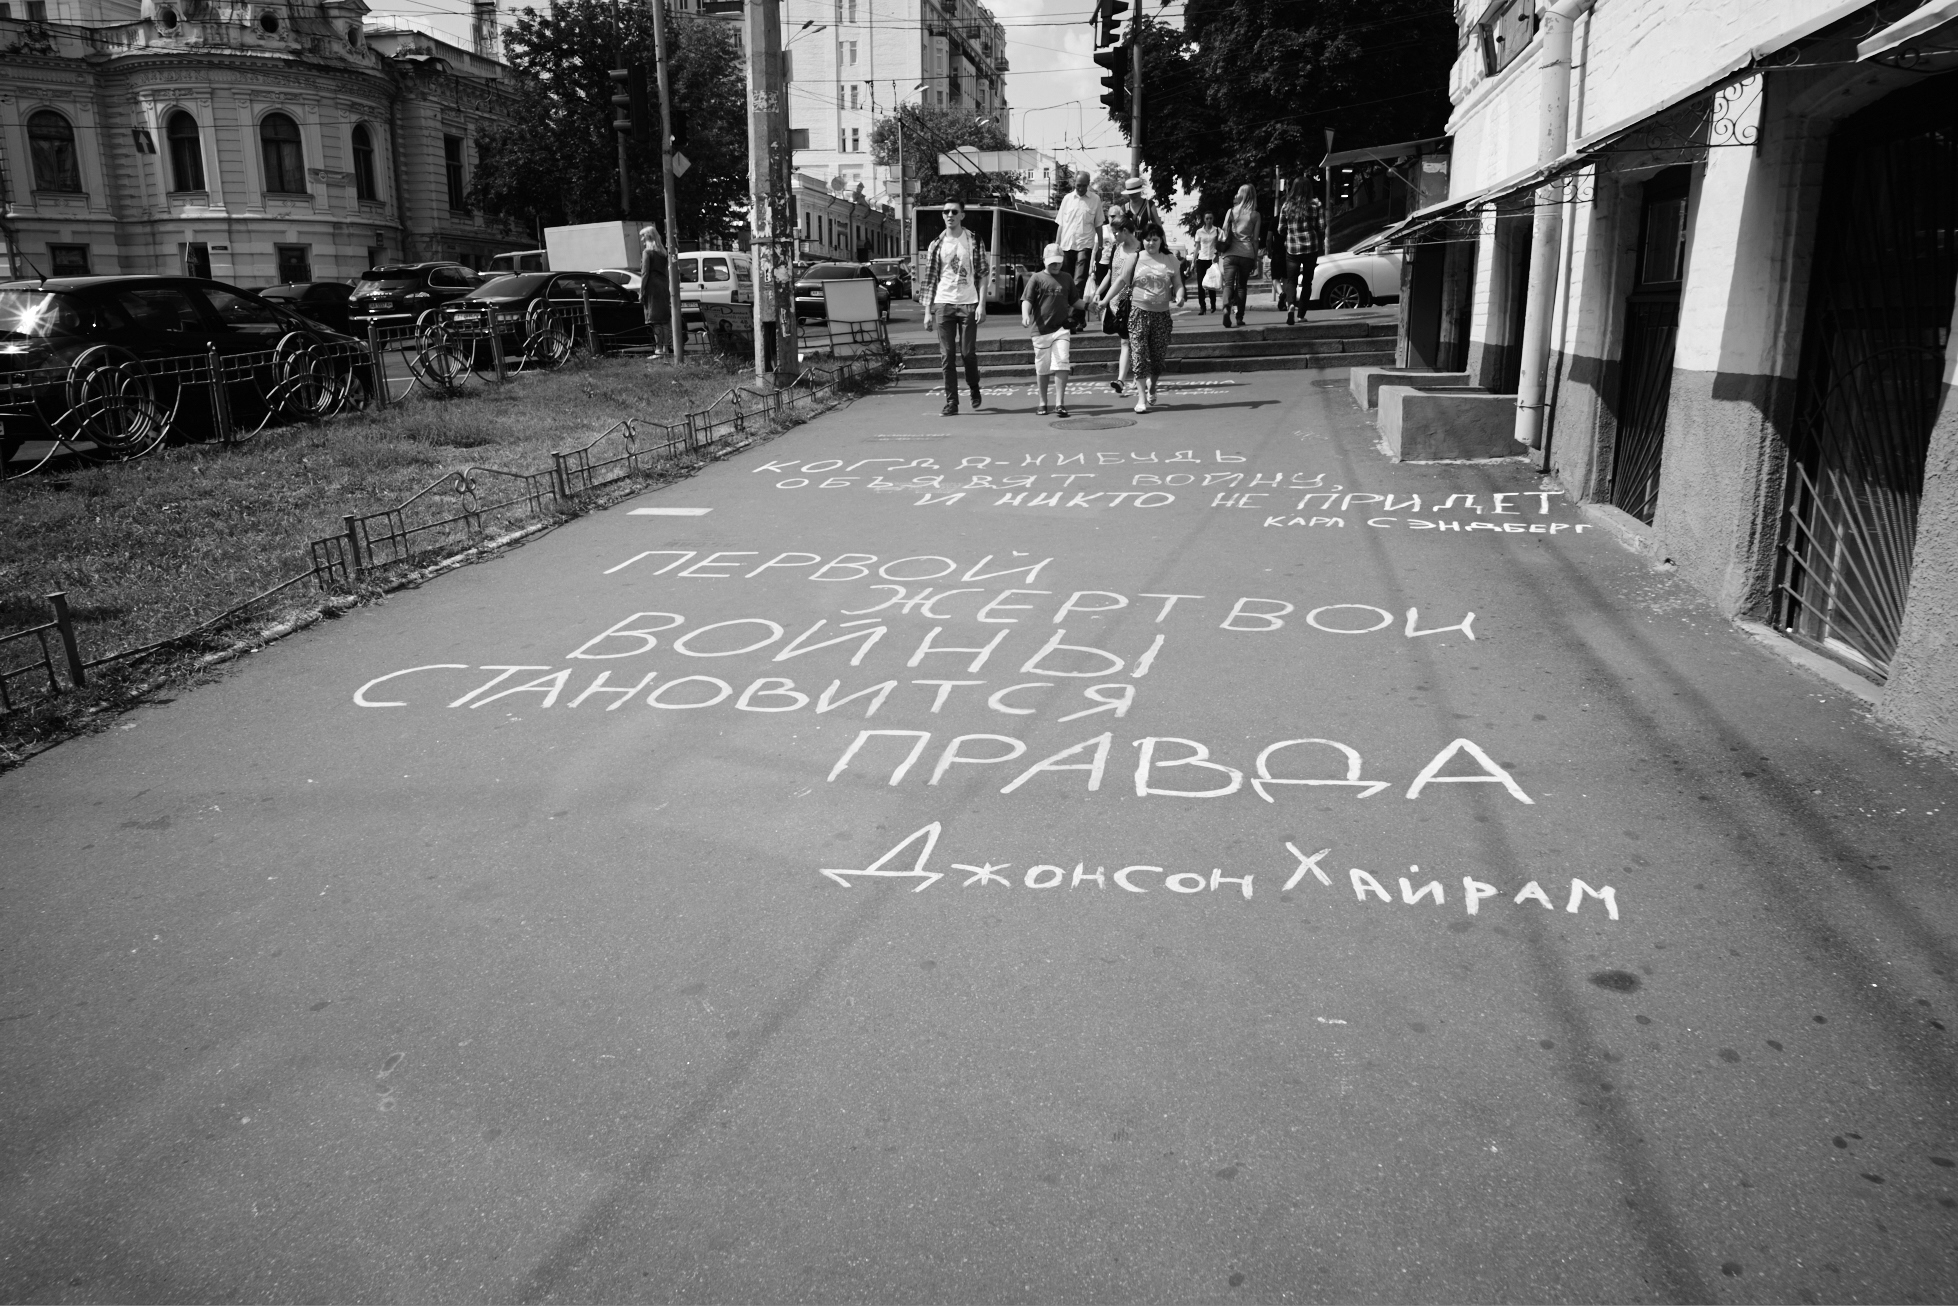 КОГДА-НИБУДЬ
ОБЪЯВЯТ ВОЙНУ,
И НИКТО НЕ ПРИДЕТ
КАРЛ СЭНДБЕРГ
ПЕРВОЙ
ЖЕРТВОЙ
ВОЙНЫ
СТАНОВИТСЯ
ПРАВДА
Джонсон Хайрам